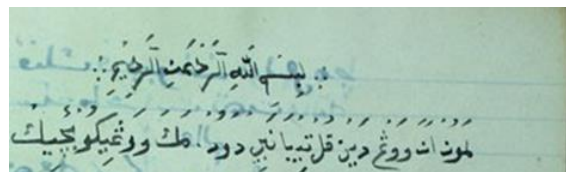 بِسْمِ اللّٰهِ الرَّحْمٰنِ الرَّحِيْمِ
لمون ان ووڠ دين قل تيبيا نبي دود. مك ووڠيكو بچيك